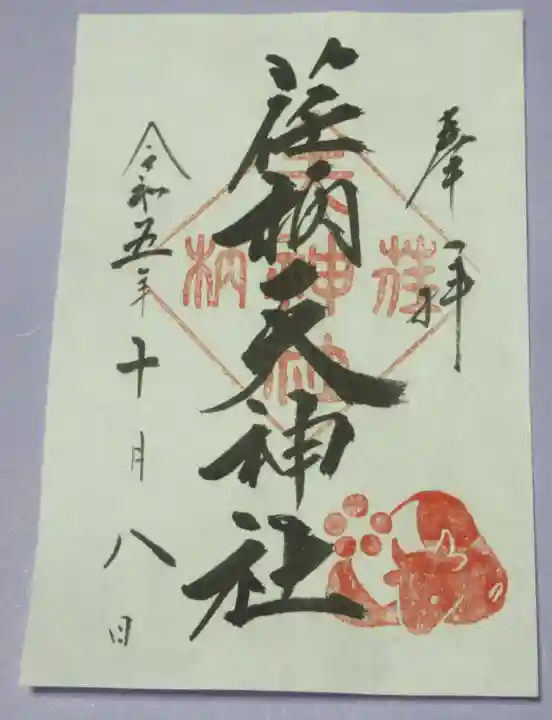 奉拝
荏柄天神社
令和五年十月八日
荏柄天神社